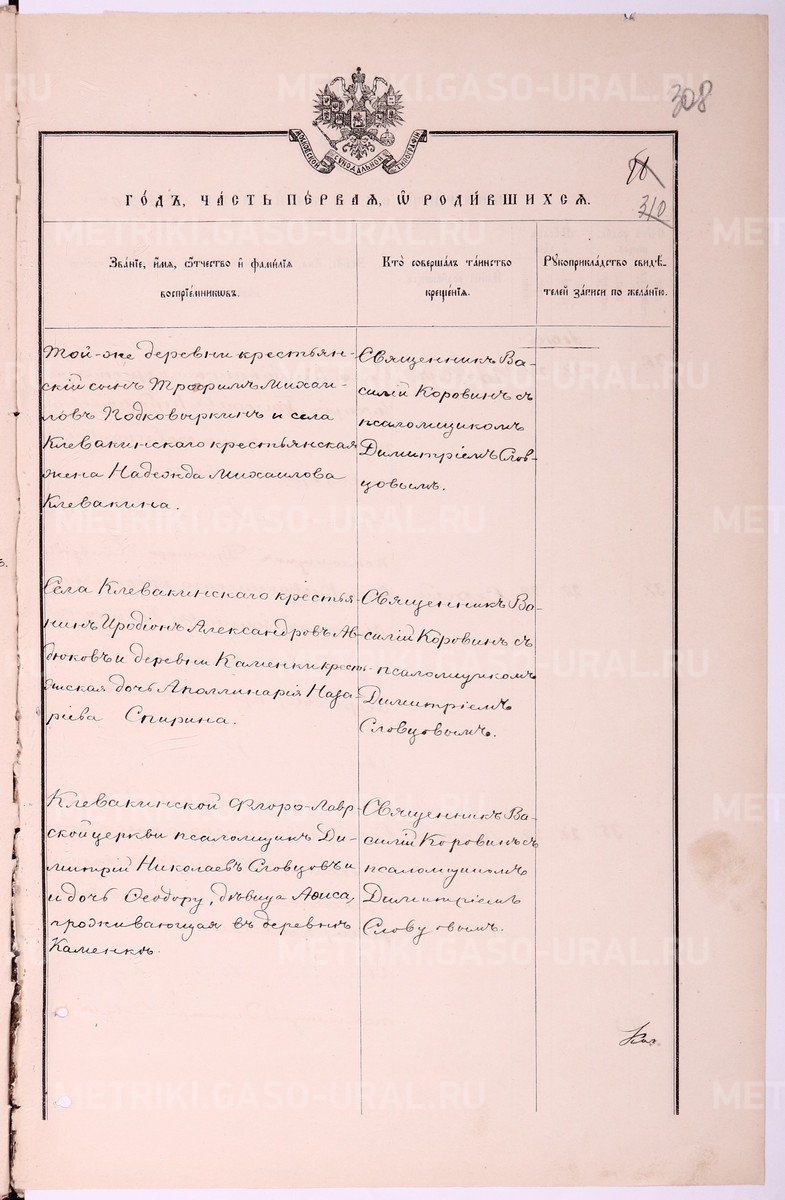 308
310
МОСКОВСКОЙ СѴНОДАЛЬНОЙ ТИПОГРАФІИ
ГО́ДЪ, ЧА́СТЬ ПЕ́РВАЯ, Ѡ҆ РОДИ́ВШИХСѦ.
Зва́нїе, и҆́мѧ, ѻ҆́тчество и҆ фами́лїѧ
воспрїе́мникѡвъ.
Кто̀ соверша́лъ та́инство
креще́нїѧ.
Рꙋкоприкла́дство свидѣ́-
телей за́писи по жела́нїю.
Той-же деревни крестьян-
скій сынъ Трофимъ Михаи-
ловъ Подковыркинъ и села
Клевакинскаго крестьянская
жена Надежда Михаилова
Клевакина.
Священникъ Ва-
силій Коровинъ съ
псаломщикомъ
Димитріемъ Слов-
цовымъ.
Села Клевакинскаго крестья-
нинъ Иродіонъ Александровъ Ав-
дюковъ и деревни Каменки кресть-
янская дочь Аполлинарія Наза-
ріева Спирина.
Священникъ Ва-
силій Коровинъ съ
псаломщикомъ
Димитріемъ
Словцовымъ.
Клевакинской Флоро-Лавр-
ской церкви псаломщикъ Ди-
митрій Николаевъ Словцовъ и
и дочь Ѳеодору, дѣвица
проживающая въ деревнѣ
Каменкѣ.
Священникъ Ва-
силій Коровинъ съ
псаломщикомъ
Димитріемъ
Словцовымъ.
METRIKI.GASO-URAL.RU